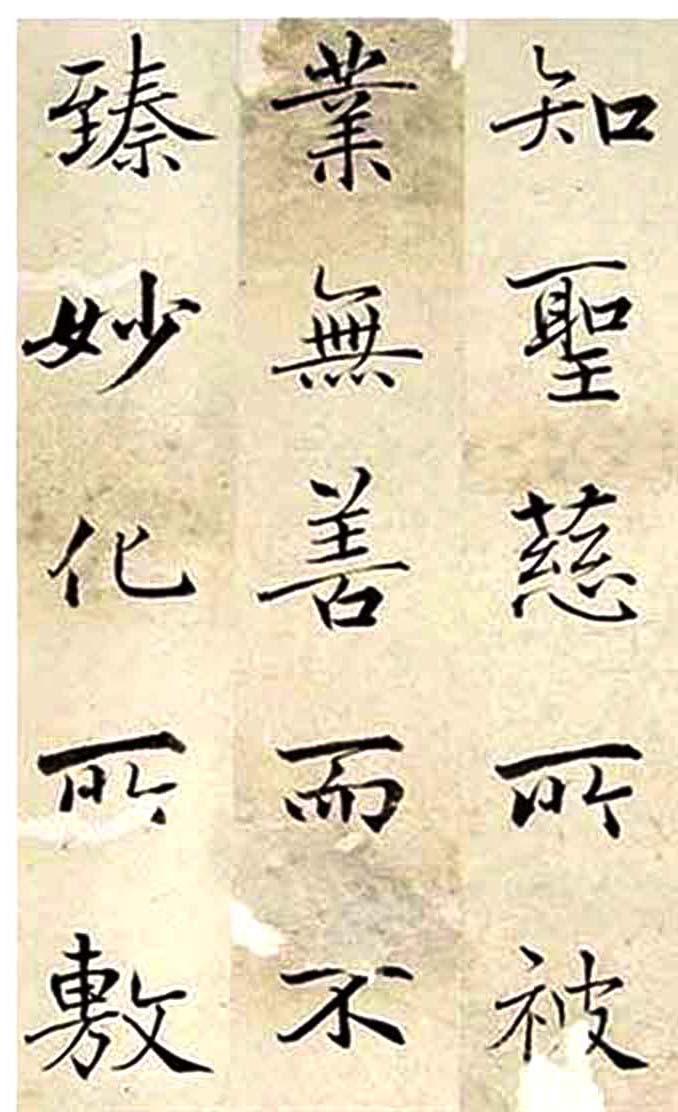 知聖慈所被
業無善而不
臻妙化所敷